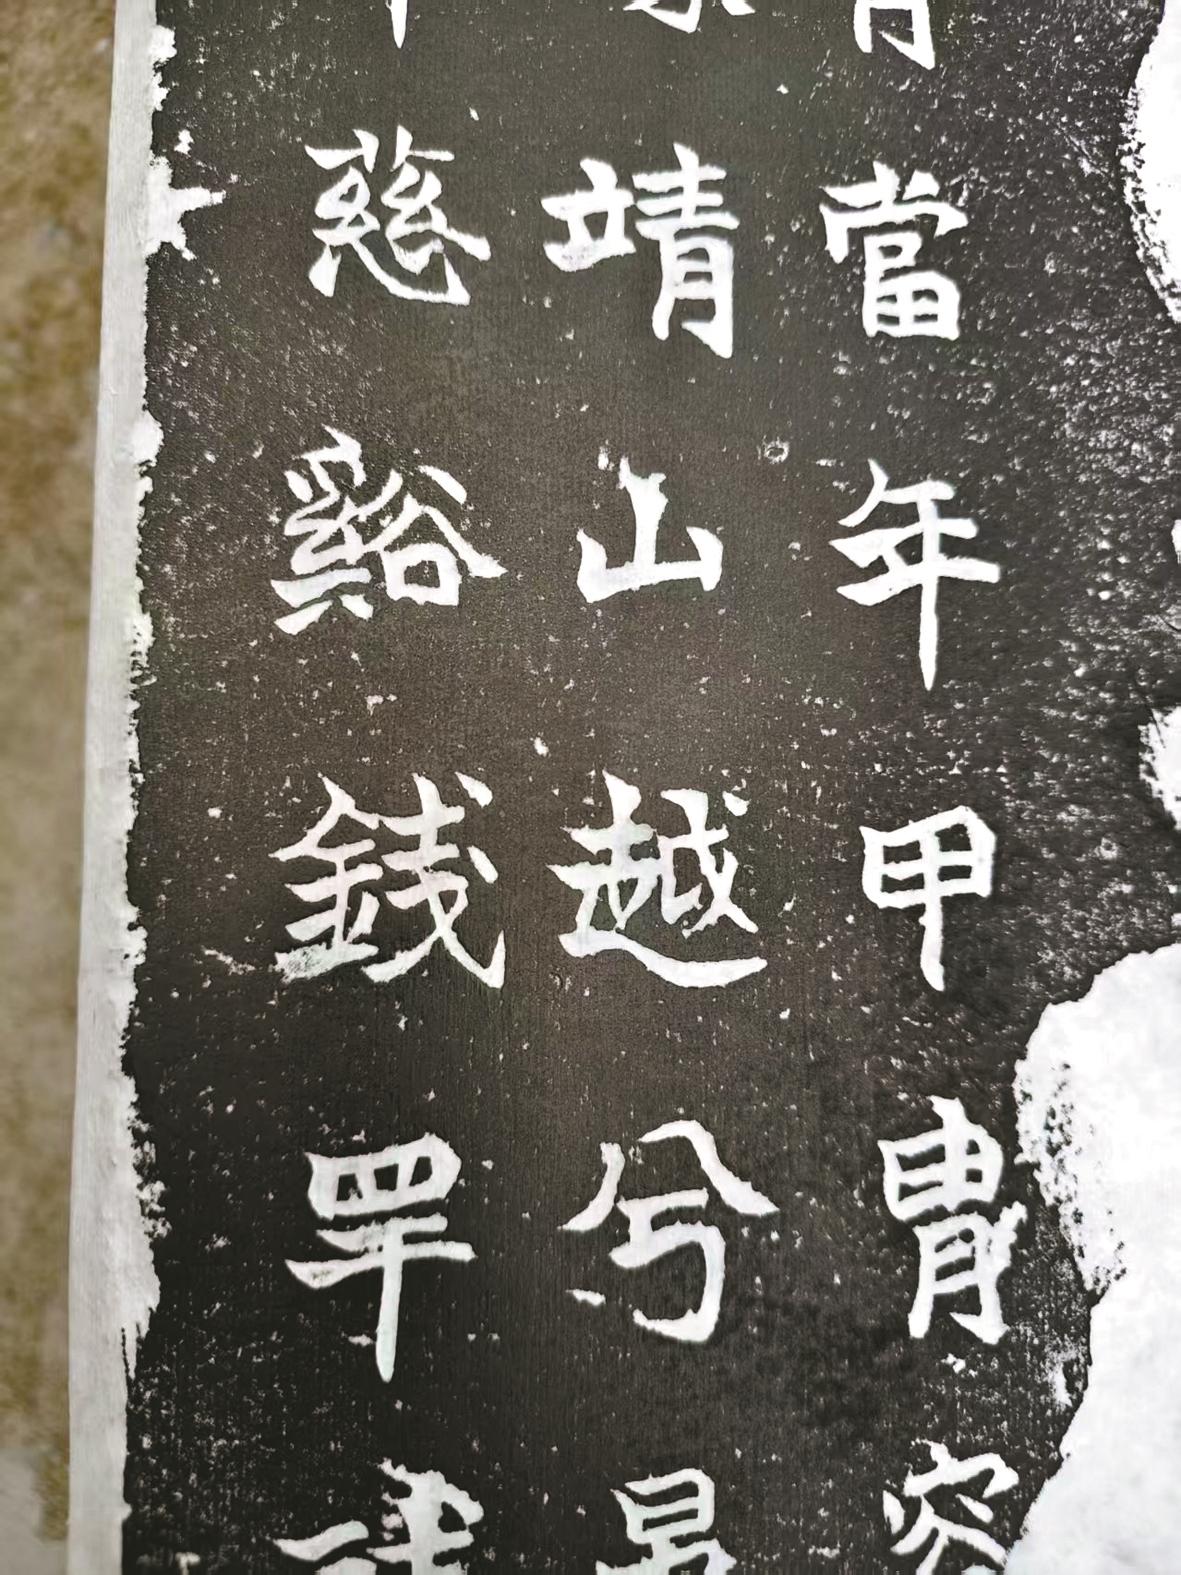 當年甲冑容
靖山越兮
慈谿錢罕